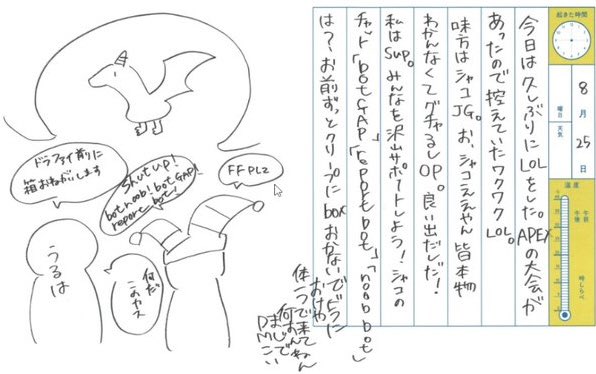 起きた時間
8月25日
曜日
天気
温度
午前
午後
時しらべ
今日は久しぶりにLOLをした。APEXの大会が
あったので控えていたワクワクLOL。
味方はシャコJG。お、シャコええやん 皆本物
わかんなくてグチャるしOP。良い出だしだ!
私はsup。みんなを沢山サポートしよう!シャコの
チャット「bot GAP」「report bot」「noob bot」
は?お前ずっとクリープにboxおかないでドラに
おけや
体一つで来てねん
まじで
DMこい
ドラファイ前に
箱おねがいします
Shut up!
bot noob! bot GAP!
report bot!
FF PLZ
うるは
何だ